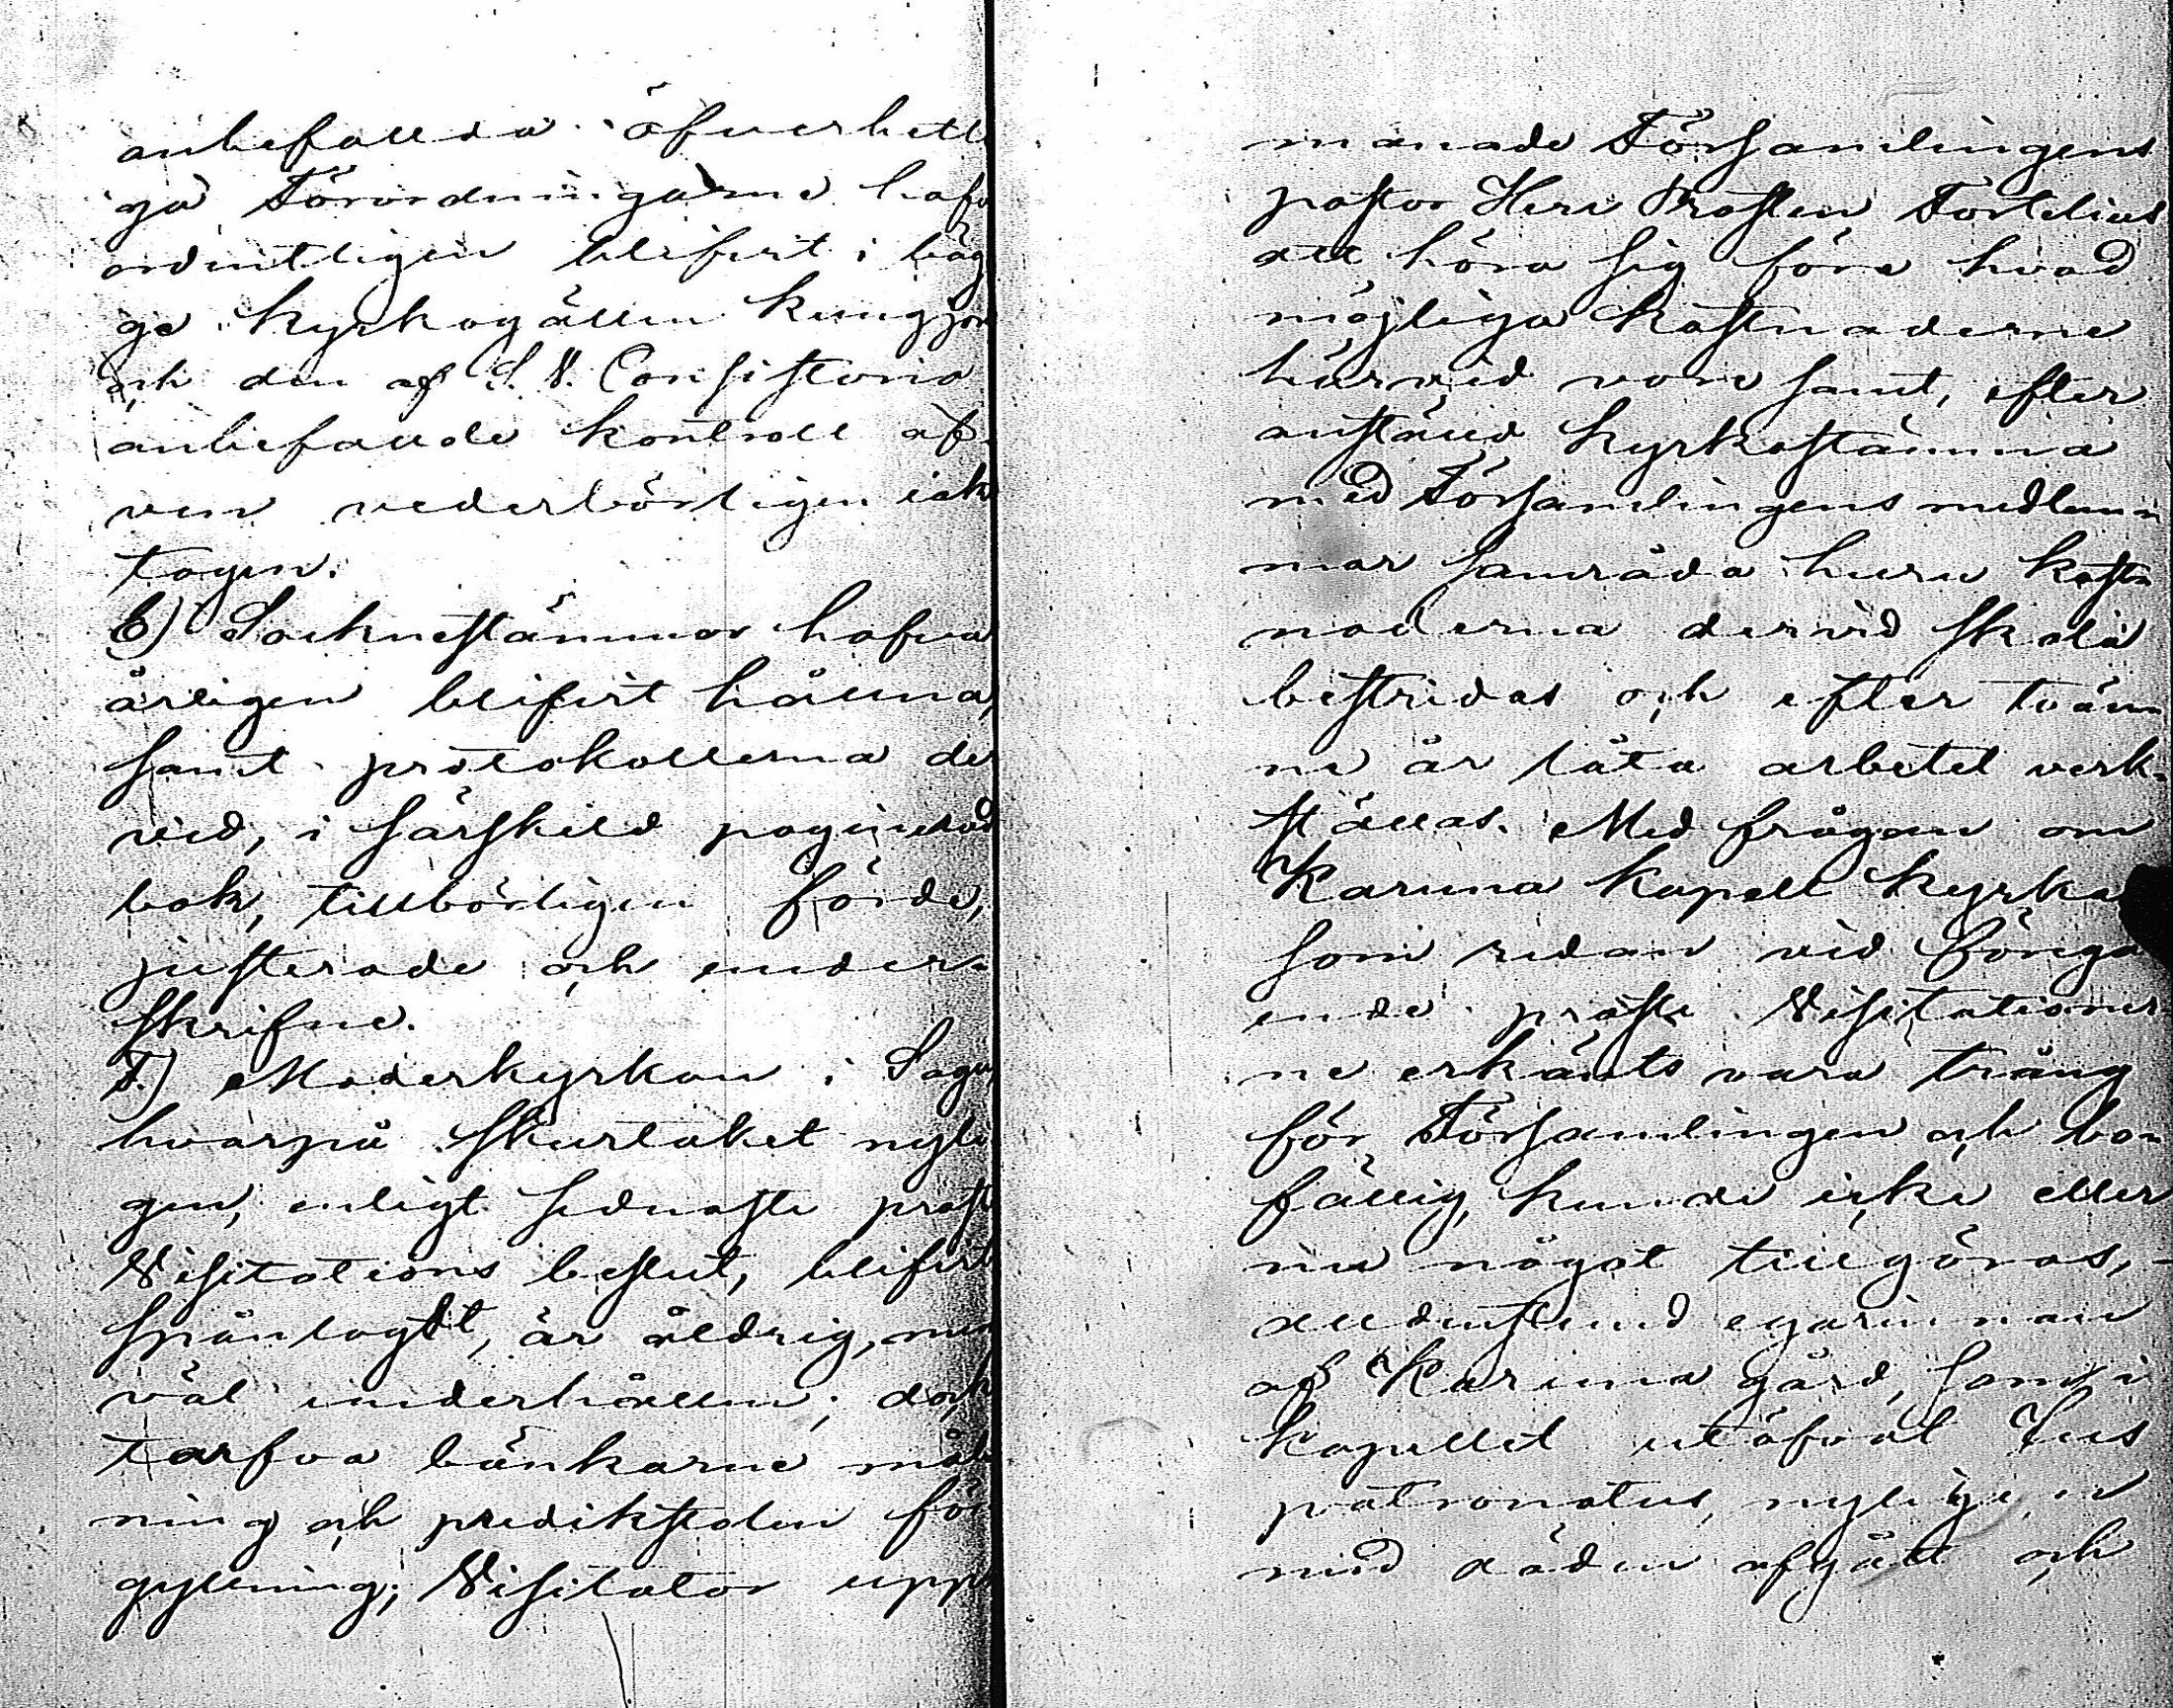 anbefallda öfverhetli
ga Förordningarne hafv
ordentligen blifvit i båg
ge kyrkogällen kungjor
och den af S. V. Consistorio
anbefallde kontroll äf-
ven vederbörligen iakt
tagen.
E) Socknestämmor hafva
årligen blifvit hållna,
samt protokollerna der
vid, i särskild paginerad
bok, tillbörligen förde,
justerade och under-
skrifne.
F.) Moderkyrkan i Sagu,
hvarpå skurtaket nyli
gen, enligt sednaste prost
Visitations beslut, blifvit
spånlagdt, är åldrig, men
väl underhållen; dock
tarfva bänkarne mål
ning och predikstolen för
gyllning; Visitator upp
manade Församlingens
pastor Herr Prosten Fortelius
att höra sig före hvad
möjliga kostnaderne
härvid vore samt, efter
anställd kyrkostämma
med Församlingens medlem
mar samråda huru kost
naderna dervid skola
bestridas och efter tvän
ne år låta arbetet verk-
ställas. Med frågan om
Karuna Kapell kyrka
som redan vid föregå
ende prosts Visitationer
ne erkänts vara trång
för Församlingen och bo
fällig, kunde icke eller
nu något tillgöras, -
alldenstund egarinnan
af Karuna gård, som i
kapellet utöfvat Jus
patronatus, nyligen
med döden afgått och